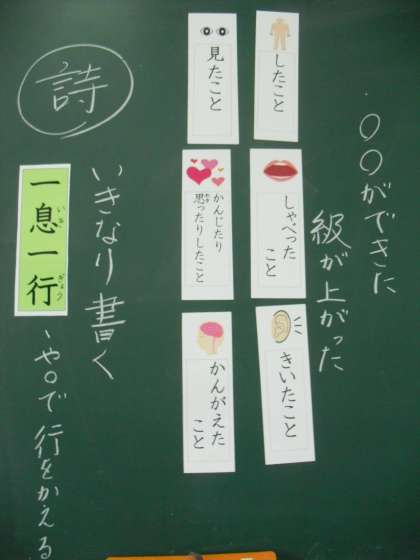 ○○ができた
級が上がった
したこと
しゃべった
こと
きいたこと
見たこと
かんじたり
思ったりしたこと
かんがえた
こと
詩
いきなり書く
一息一行
、や。で行をかえる